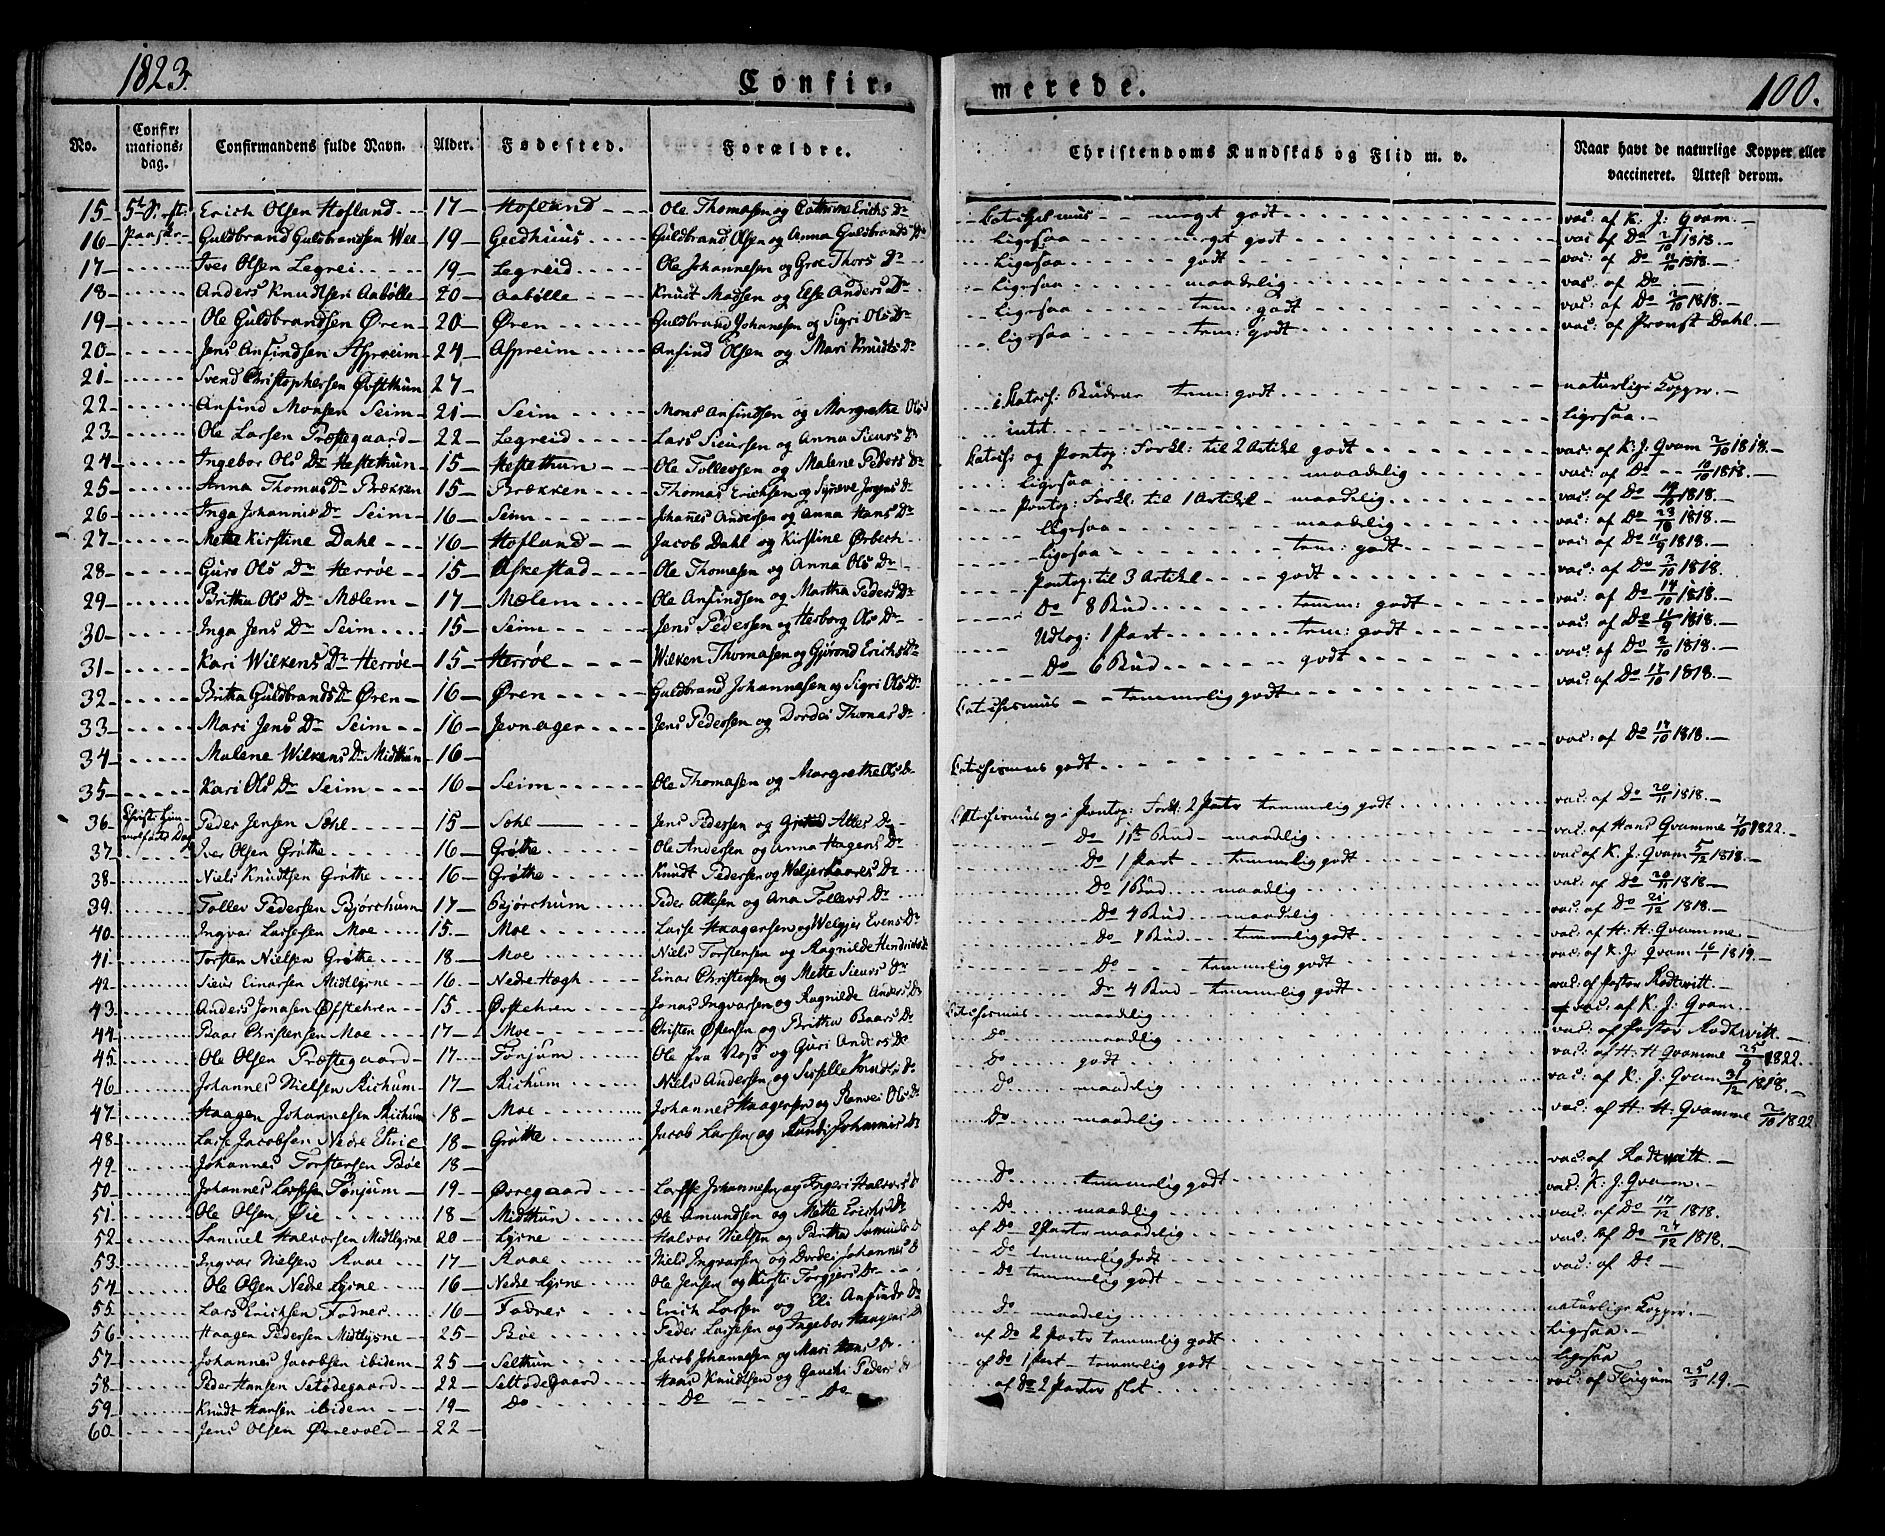 1823.
Confir-
merede.
100.
No.
Confir-
mations-
dag.
Confirmandens fulde Navn.
Alder.
Fødested.
Forældre.
Christendoms Kundskab og Flid m. v.
Naar havt de naturlige Kopper eller
vaccineret. Attest derom.
15 Erich Olsen Hofland 17 Hofland Ole Thomasen og Cathrine Erichs Dr meget godt vac: af K: J: Qvam.
16 Guldbrand Guldbrandsen Wee 19 Geedhuus Guldbrand Olsen og Anna Guldbrands Dr Ligesaa meget godt vac: af Do 2/10 1818.
17 Iver Olsen Legrei 19 Legreid Ole Johannesen og Groe Thors Dr Ligesaa godt vac: af Do 11/10 1818.
18 Anders Knudtsen Aabølle 20 Aabølle Knudt Madsen og Else Anders Dr Ligesaa maadelig vac: af Do
19 Ole Guldbrandsen Øren 20 Øren Guldbrand Johanesen og Sigri Ols Dr Ligesaa tem: godt vac: af Do 2/10 1818.
20 Jens Anfindsen Aspreim 24 Aspreim Anfind Olsen og Mari Knudts Dr Ligesaa tem: godt vac: af Provst Dahl.
21 Svend Christophersen Øvsthun 27
22 Anfind Monsen Seim 21 Seim Mons Anfindsen og Margrethe Ols tem: godt naturlige Kopper.
23 Ole Larsen Præstegaard 22 Legreid Lars Sieursen og Anna Sieurs Dr intet Ligesaa.
24 Ingebor Ols Dr Hestethun 15 Hestethun Ole Tollevsen og Malene Peders Dr og Pontop: Forkl: til 2 Artikl godt vac: af K: J: Qvam 2/10 1818.
25 Anna Thomas Dr Brækken 15 Brækken Thomas Erichsen og Synneve Jørgens Dr Ligesaa maadelig vac: af Do 10/10 1818.
26 Inga Johannis Dr Seim 16 Seim Johanes Andersen og Anna Hans Dr Pontop: Forkl. til 1 Artikl maadelig vac: af Do 14/10 1818.
27 Mette Kirstine Dahl 16 Hofland Jacob Dahl og Kirstine Ørbech Ligesaa maadelig vac: af Do 23/10 1818.
28 Guro Ols Dr Herrøe 15 Askestad Ole Thomasen og Anna Ols Dr Ligesaa tem: godt vac: af Do 11/9 1818.
29 Britha Ols Dr Mælem 17 Mælem Ole Anfindsen og Martha Peders Dr Pontop: til 3 Artikl godt vac: af Do 2/10 1818.
30 Inga Jens Dr Seim 15 Seim Jens Pedersen og Herborg Ols Dr Do 8 Bud temm: godt vac: af Do 14/10 1818.
31 Kari Wilkens Dr Herrøe 15 Herrøe Wilken Thomasen og Gjørond Erichs Dr Udtog: 1 Part tem: godt vac: af Do 11/9 1818.
32 Britha Guldbrands Dr Øren 16 Øren Guldbrand Johannesen og Sigri Ols Dr Do 6 Bud godt vac: af Do 2/10 1818.
33 Mari Jens Dr Seim 16 Jevnager Jens Pedersen og Dordei Thomas Dr temmelig godt vac: af Do 17/10 1818.
34 Malene Wilkens Dr Midthun 16
35 Kari Ols Dr Seim 16 Seim Ole Thomasen og Margrethe Ols Dr Catechismus godt vac: af Do 17/10 1818.
36 Christi Him-
melfarts Dag Peder Jensen Sohl 15 Sohl Jens Pedersen og Attes Dr Pontop: Forkl: 2 Parter temmelig godt vac: af Do 20/11 1818.
37 Iver Olsen Grøthe 16 Grøthe Ole Andersen og Anna Hagens Dr Do 1ste Bud maadlig vac: af Hans Qvamme 7/10 1822.
38 Niels Knudtsen Grøthe 16 Grøthe Knudt Pedersen og Haares Dr Do 1 Part temmelig godt vac: af K. J: Qvam 5/12 1818.
39 Tollev Pedersen Bjørchum 17 Bejørchum Peder Attesen og Ana Tollevs Dr Do 1 Bud maadlig vac: af Do 20/11 1818
40 Ingvar Larsesen Moe 15 Moe Larse Haagensen og Evens Dr Do 4 Bud maadelig vac: af Do 21/12 1818.
41 Torsten Nielsen Grøthe 18 Moe Niels Torstensen og Ragnilde Do Bud temmelig godt vac: af H: H: Qvamme.
42 Sieur Einarsen Midtlysne 16 Nedre Hægh Einar Christensen og Mette Sieurs Dr Do temmelig godt vac: af K: J: Qvam 16/1 1819.
43 Anders Jonasen Øfstehren 15 Øvstehren Jonas Ingvarsen og Ragnilde Anders Dr Do 4 Bud temmelig godt vac: af Pastor Rodtwitt.
44 Baar Christensen Moe 17 Moe Christen Østensen og Britha Baars Dr maadlig vac: af K: J: Qvam.
45 Ole Olsen Præstegaard 17 Tønjum Ole fra Voss og Guri Anders Dr Do maadlig vac: af Pastor Rodtwitt.
46 Johannes Nielsen Richum 17 Richum Niels Andersen og Siselle Knudts Dr Do godt vac: af H: H Qvamme 25/9 1822.
47 Haagen Johannesen Richum 18 Moe Johannes Haagensen og Ranvei Ols Dr Do maadelig vac: af K: J: Qvam 31/12 1818.
48 Larse Jacobsen Nedre 18 Grøthe Jacob Larsen og Johannis Dr Do maadelig vac: af H: H: Qvamme 2/10 1822
49 Johannes Torstensen Bøe 18
50 Johannes Larsesen Tønjum 19 Øvregaard Larse Johannesen og Ingeri Halvors Dr Do temmelig godt vac: af Rodtwitt.
51 Ole Olsen Øie 18 Midthun Ole Amundsen og Mette Erichs Dr Do maadlig vac: K: J: Qvam.
52 Samuel Halvorsen Midtlysne 20 Lysne Halvor Nielsen og Britha Samuels Dr af Do 2 Parter maadelig vac: af Do 17/12 1818.
53 Ingvar Nielsen Raae 17 Raae Niels Ingvarsen og Dordei Johannes Dr Do temmelig godt vac: af Do 24/12 1818.
54 Ole Olsen Nedre Lysne 16 Nedre Lysne Ole Jensen og Kirsti Torgjers Dr Do temmelig godt vac: af Do
55 Lars Erichsen Fodnes 16 Fodnes Erich Larsen og Eli Anfinds Dr Do maadelig naturlige Kopper.
56 Haagen Pedersen Midtlysne 25 Bøe Peder Larsesen og Ingebor Haagens Dr af Do 2 Parter temmelig godt Ligesaa.
57 Johannes Jacobsen ibidem 25 Selthun Jacob Johannesen og Mari Hans Dr af Do 1 Part temmelig godt Ligesaa
58 Peder Hansen Seltødegaard 22 Seltødegaard Hans Knudtsen og Peders Dr af Do 2 Parter slet vac: af 25/3 19.
59 Knudt Hansen ibidem 19 Do Do Do
60 Jens Olsen Ørrevold 22